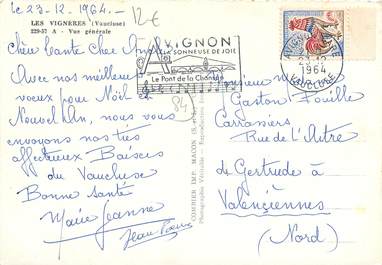 Le 23-12.1964.-
12€
LES VIGNERES (Vaucluse)
229-37 A - Vue générale
Chère tante Cher Oncle
Avec nos meilleurs
voeux pour Noël et
Nouvel An, nous vous
envoyons nos très
affectueux Baisers
du Vaucluse
Bonne Santé
Marie Jeanne
AVIGNON
LA SONNEUSE DE JOIE
Le Pont de la Chanson
84
AVIGNON
23-12
1964
VAUCLUSE
COMBIER IMP. MACON
Photographie Véritable - Reproduction
Monsieur
Gaston
Carrassiers
Rue de l'Autre
de Gertrude à
Valenciennes
(Nord)